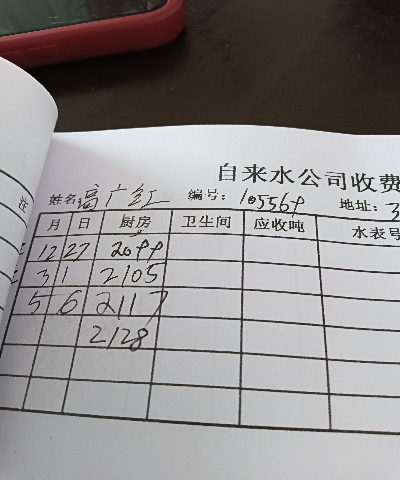 自来水公司收费
姓名 高广红 编号: 105569 地址: 3
月 日 厨房 卫生间 应收吨 水表号
12 27 2099
3 1 2105
5 6 2117
2128